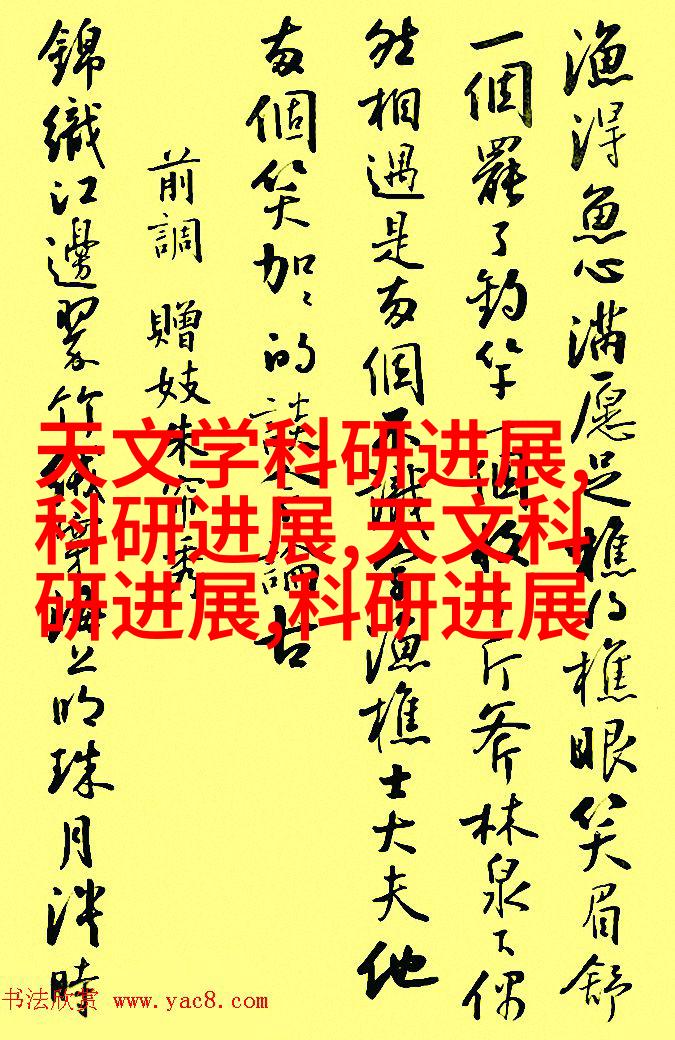 漁得魚心滿愿足樵得樵眼笑眉舒
一個罷了釣竿一個收了斤斧林泉下偶
然相遇是兩個不識字漁樵士大夫他
兩個笑加加的談今論古
前調 贈妓朱帘秀
錦織江邊翠竹絨穿海上明珠月淡時
天文学科研进展,
科研进展,天文科
研进展,科研进展
书法欣赏 www.yac8.com